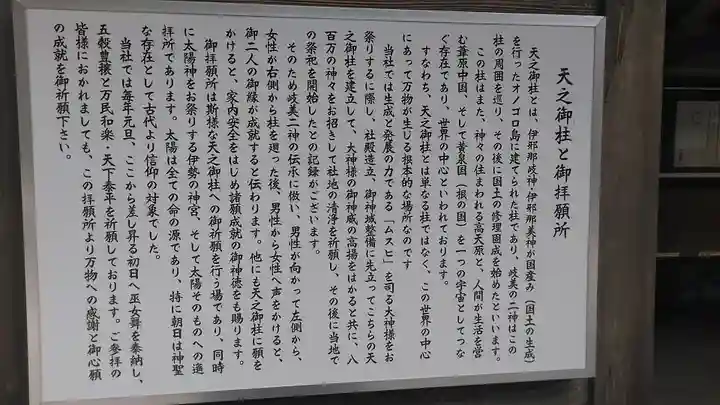 天之御柱と御拝願所
天之御柱とは、伊邪那岐神・伊邪那美神が国産み（国土の生成）
を行ったオノゴロ島に建てられた柱であり、岐美の二神はこの
柱の周囲を巡り、その後に国土の修理固成を始めたといいます。
この柱はまた、神々の住まわれる高天原と、人間が生活を営
む葦原中国、そして黄泉国（根の国）を一つの宇宙としてつな
ぐ存在であり、世界の中心といわれております。
すなわち、天之御柱とは単なる柱ではなく、この世界の中心
にあって万物が生じる根本的な場所なのです
当社では生成と発展の力である「ムスヒ」を司る大神様をお
祭りするに際し、社殿造立、御神域整備に先立ってこちらの天
之御柱を建立して、大神様の御神威の高揚をはかると共に、八
百万の神々をお招きして社地の清浄を祈願し、その後に当地で
の祭祀を開始したとの記録がございます。
そのため岐美二神の伝承に倣い、男性が向かって左側から、
女性が右側から柱を廻った後、男性から女性へ声をかけると、
御二人の御縁が成就すると伝わります。他にも天之御柱に願を
かけると、家内安全をはじめ諸願成就の御神徳をも賜ります。
御拝願所は斯様な天之御柱への御祈願を行う場であり、同時
に太陽神をお祭りする伊勢の神宮、そして太陽そのものへの遥
拝所であります。太陽は全ての命の源であり、特に朝日は神聖
な存在として古代より信仰の対象でした。
当社では毎年元旦、ここから差し昇る初日へ巫女舞を奉納し、
五穀豊穣と万民和楽・天下泰平を祈願しております。ご参拝の
皆様におかれましても、この拝願所より万物への感謝と御心願
の成就を御祈願下さい。